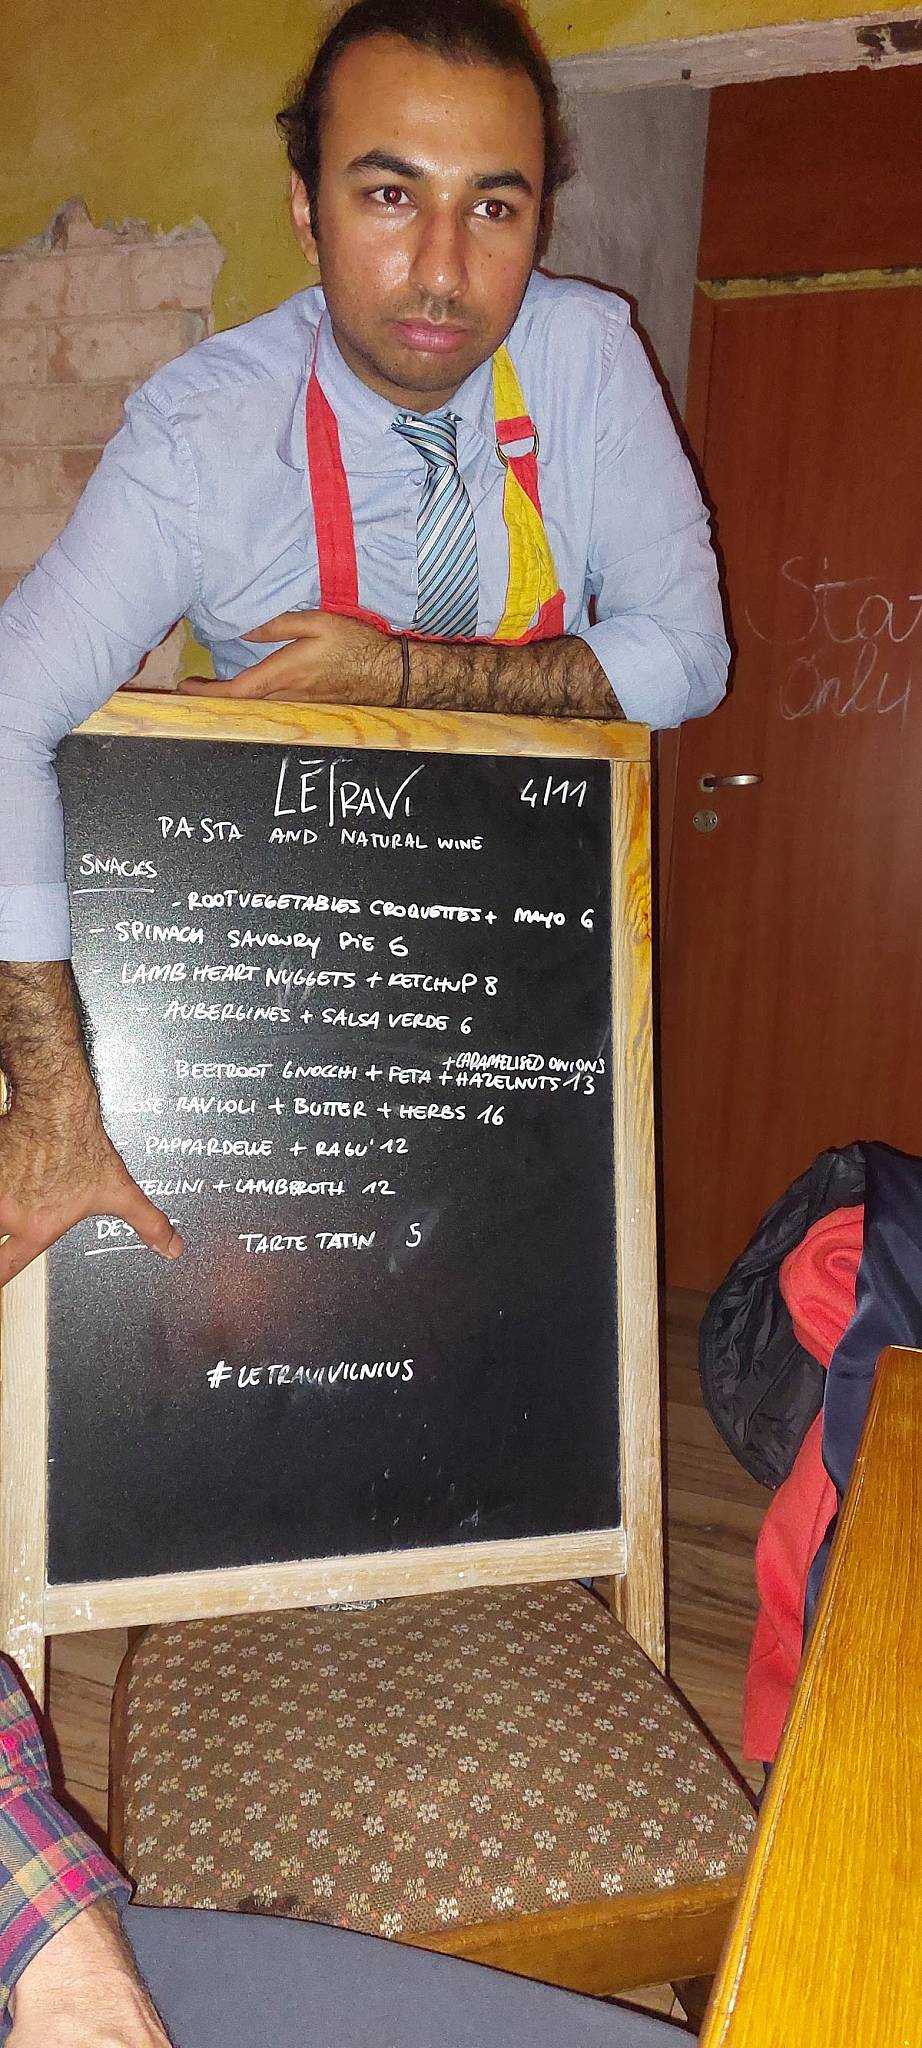 LÉTRAVI 4/11
PASTA AND NATURAL WINE
SNACKS
- ROOT VEGETABLES CROQUETTES + MAYO 6
- SPINACH SAVOURY PIE 6
- LAMB HEART NUGGETS + KETCHUP 8
- AUBERGINES + SALSA VERDE 6
+ CARAMELISED ONIONS
- BEETROOT GNOCCHI + FETA + HAZELNUTS 13
RAVIOLI + BUTTER + HERBS 16
- PAPPARDELLE + RAGU' 12
TELLINI + LAMB BROTH 12
DES
TARTE TATIN 5
#LETRAVIVILNIUS
Sta
Only